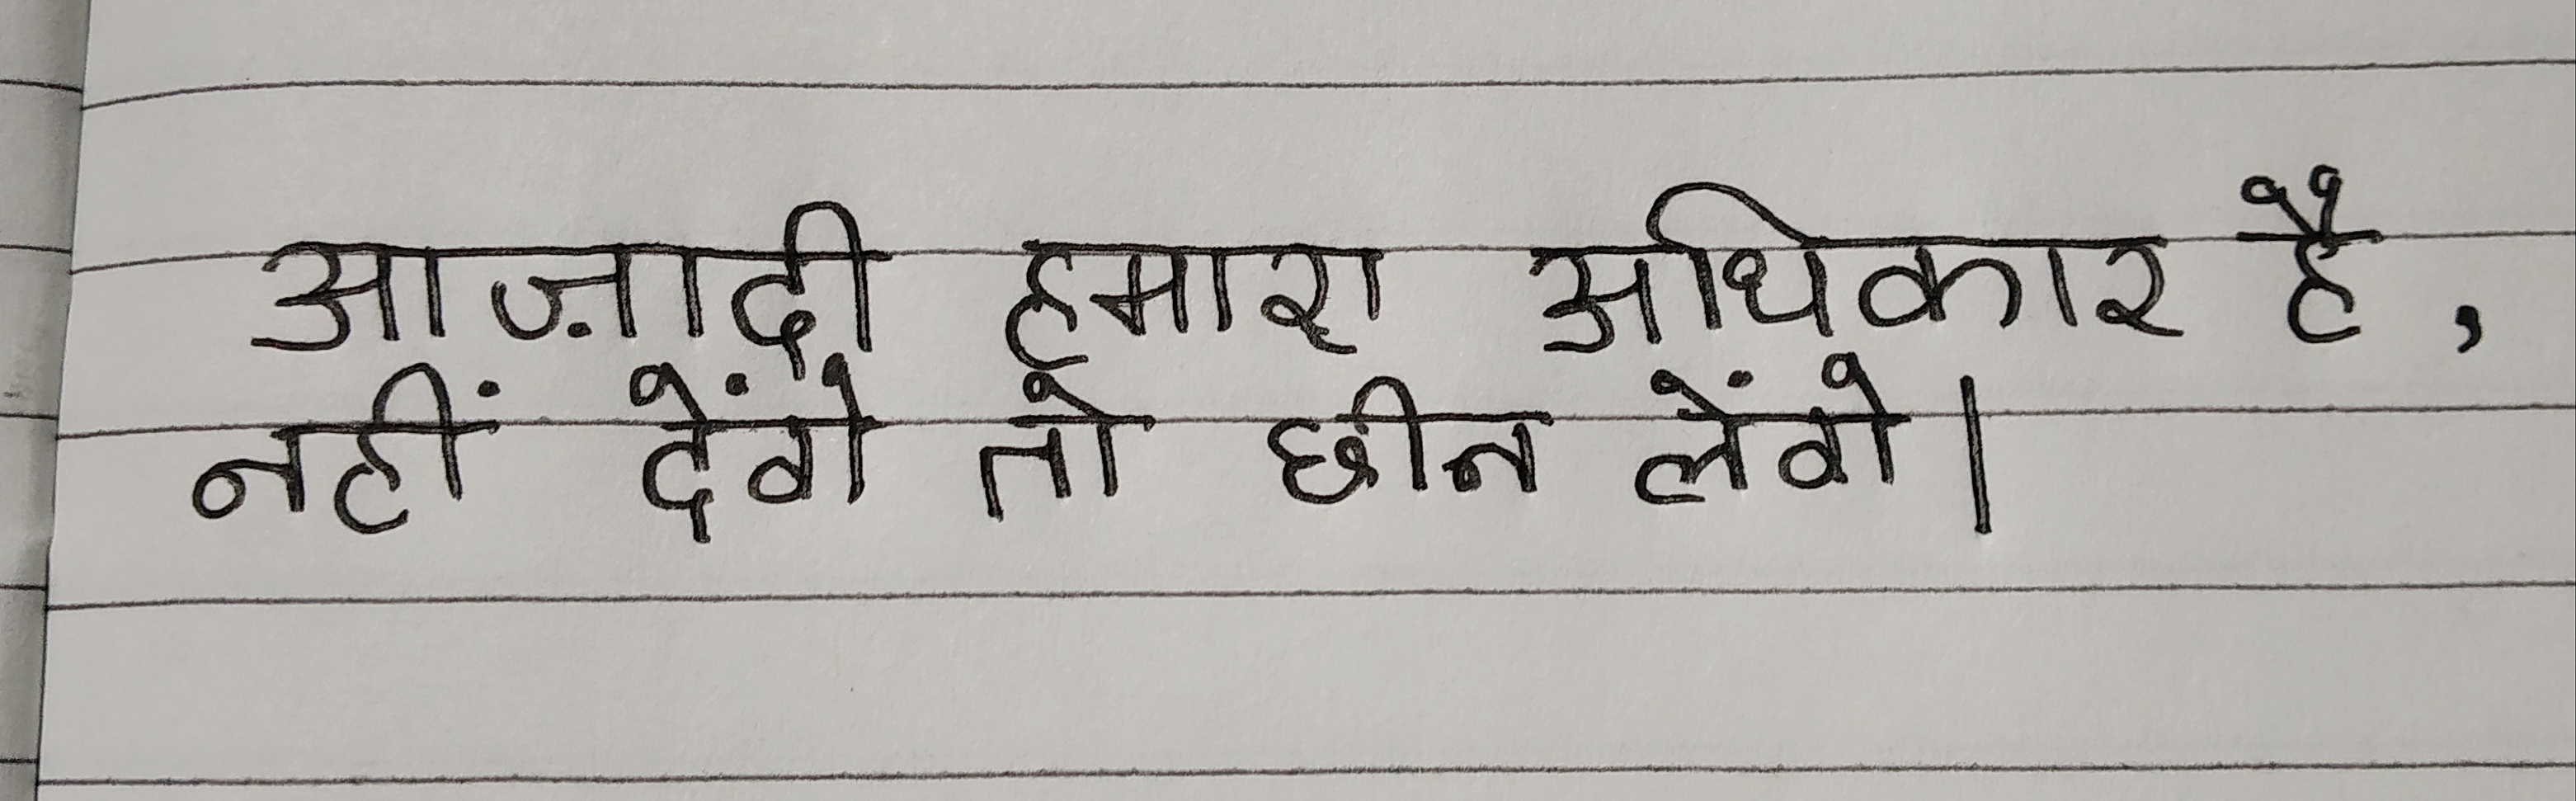 आज़ादी हमारा अधिकार है,
नहीं देंगे तो छीन लेंगे।